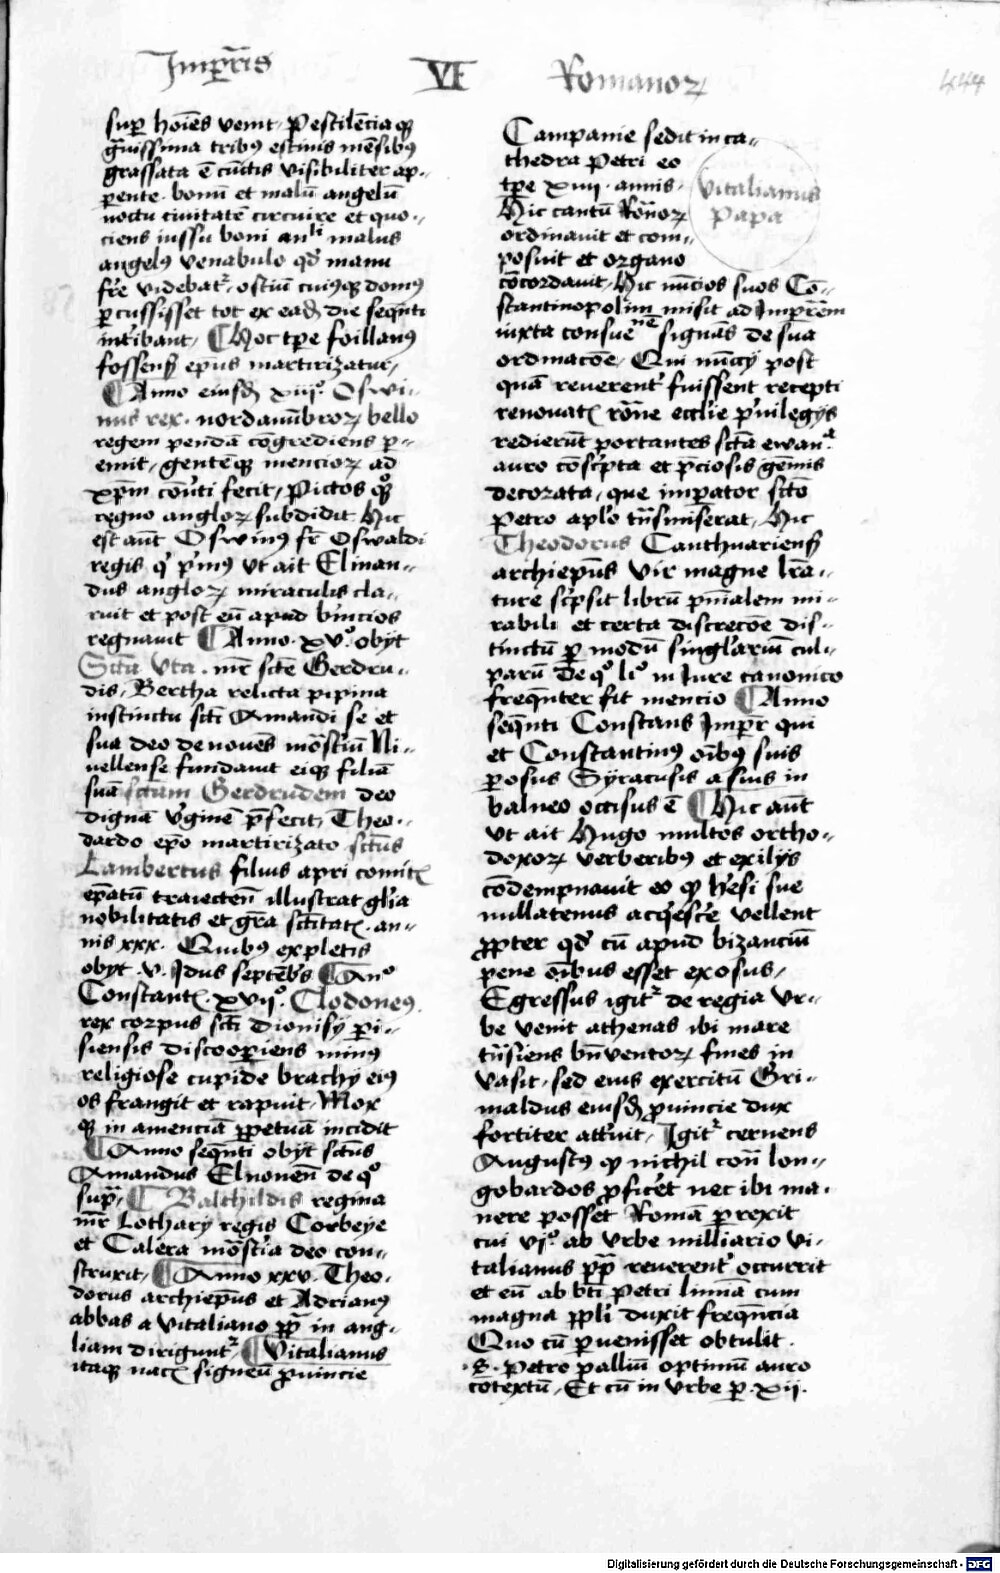 Imp̄r̄is VI Romanoꝝ
444
sup hoīes venit. Pestilēcia qꝫ
g̃uissima tribꝰ estiuis mēsibꝰ
grassata ē cūctis visibiliter ap-
parente. bonū et malū angelū
noctu ciuitatē circuire et quo-
ciens iussu boni anˡⁱ malus
angelꝰ venabulo qd̄ manu
fre videbat᷑. ostiū cuiꝰqꝫ domꝰ
ꝑcussisset tot ex eadē die seqn̄ti
int̾ibant. ¶ Hoc tꝑe foillanꝰ
fossenſ epūs martirizatur.
¶ Anno eiusdē xiijᵒ. Oswi-
nus rex. nordanūbroꝝ bello
regem pendā cōgrediens ꝑ-
emit. gentēqꝫ mencioꝝ ad
xp̄m cōu̾ti fecit. Pictos qꝫ
regno angloꝝ subdidit Hic
est aūt Oswinꝰ fr̄ Oswaldi
regis qͥ pͥmꝰ vt ait Elinan-
dus angloꝝ miraculis cla-
ruit et post eū apud b̾nicios
regnauit ¶ Anno. xvᵒ. obijt
Sctā Vta. mr̄ scte Gerdru-
dis. Bertha relicta pipina
instinctu scti Amandi se et
sua deo deuouēs mōstiū Ni-
uellense fundauit eiqꝫ filiā
suā sctam Gerdrudem deo
dignā v̾ginē p̄fecit. Theo-
dardo epō martirizato sctūs
Lambertus filius apri comitꝭ
epatū traiectenſ illustrat glīa
nobilitatis et grā sctitatꝭ. an-
nis xxx. Quibꝰ expletis
obijt .v. Idus septēbs ¶ Anᵒ
Constantꝭ. xvijᵒ. Clodoneꝰ
rex corpus scti dionisij pi-
siensis discoopiens minꝰ
religiose cupide brachij eiꝰ
os frangit et rapuit. Mox
qꝫ in amenciā ꝑpetuā incidit
¶ Anno seqn̄ti obijt sctūs
Amandus Elnonenſ de qᵒ
supͣ. ¶ Balthildis regina
mr̄ Lotharij regis Corbeye
et Calera mōstīa deo con-
struxit. ¶ Anno xxv. Theo-
dorus archiepūs et Adrianꝰ
abbas a vitaliano pp̄ in ang-
liam dirigunt᷑. ¶ Vitalianus
itaqꝫ nacꝭ signeū ꝓuincie
Campanie sedit in ca-
thedra petri eo
tꝑe xiiij. annis.
Hic cantū Rōnoꝝ
ordinauit et com-
posuit et organo
cōcordauit. Hic nūcios suos Cō-
Vitalianus
papa
stantinopolim misit ad Imꝑr̄em
iuxta consueⁿᵉ signās de sua
ordinacōe. Qui nūcij post
quā reuerent̾ fuissent recepti
renouatꝭ rōne ecclīe pͥuilegijs
redierūt portantes sctā ewanᵃ.
auro cōsc̾pta et p̄ciosis gēmis
decorata. que imꝑator sctō
petro aplo tn̄smiserat. Hic
Theodorus Canthuariensſ
archiepūs vir magne lrā-
ture sc̾psit librū pn̄ialem mi-
rabili et certa discrecōe dis-
tinctū ꝑ modū singlariū cul-
parū de qᵒ liᵒ in iure canonico
freqn̄ter fit mencio ¶ Anno
seqn̄ti Constans Imꝑr̄ qui
et Constantinꝰ oībꝰ suis
ꝑosus Syracusis a suis in
balneo occisus ē ¶ Hic aūt
vt ait Hugo multos ortho-
doxoꝝ verberibꝰ et exilijs
cōdempnauit eo qꝫ h̾esi sue
nullatenus acq̾esc̾e vellent
ꝓpter qd̄ cū apud bizanciū
pene oībus esset exosus.
Egressus igit᷑ de regia vr-
be venit athenas ibi mare
tn̄siens bn̄ventoꝝ fines in
vasit. sed eius exercitū Gri-
maldus eiusdē ꝓuincie dux
fortiter att̾uit. Igit᷑ cernens
Augustꝰ qꝫ nichil conͣ lon-
gobardos ꝓfic̾et nec ibi ma-
nere posset Romā ꝑrexit
cui vjᵒ. ab vrbe milliario vi-
talianus pp̄ reuerent̾ occurrit
et eū ab bti petri limiā cum
magna ppli duxit freqn̄cia
Quo cū ꝑuenisset obtulit.
.S. petro palliū optimū auro
cōtextū. Et cū in vrbe ꝑ .xij.
Digitalisierung gefördert durch die Deutsche Forschungsgemeinschaft - DFG